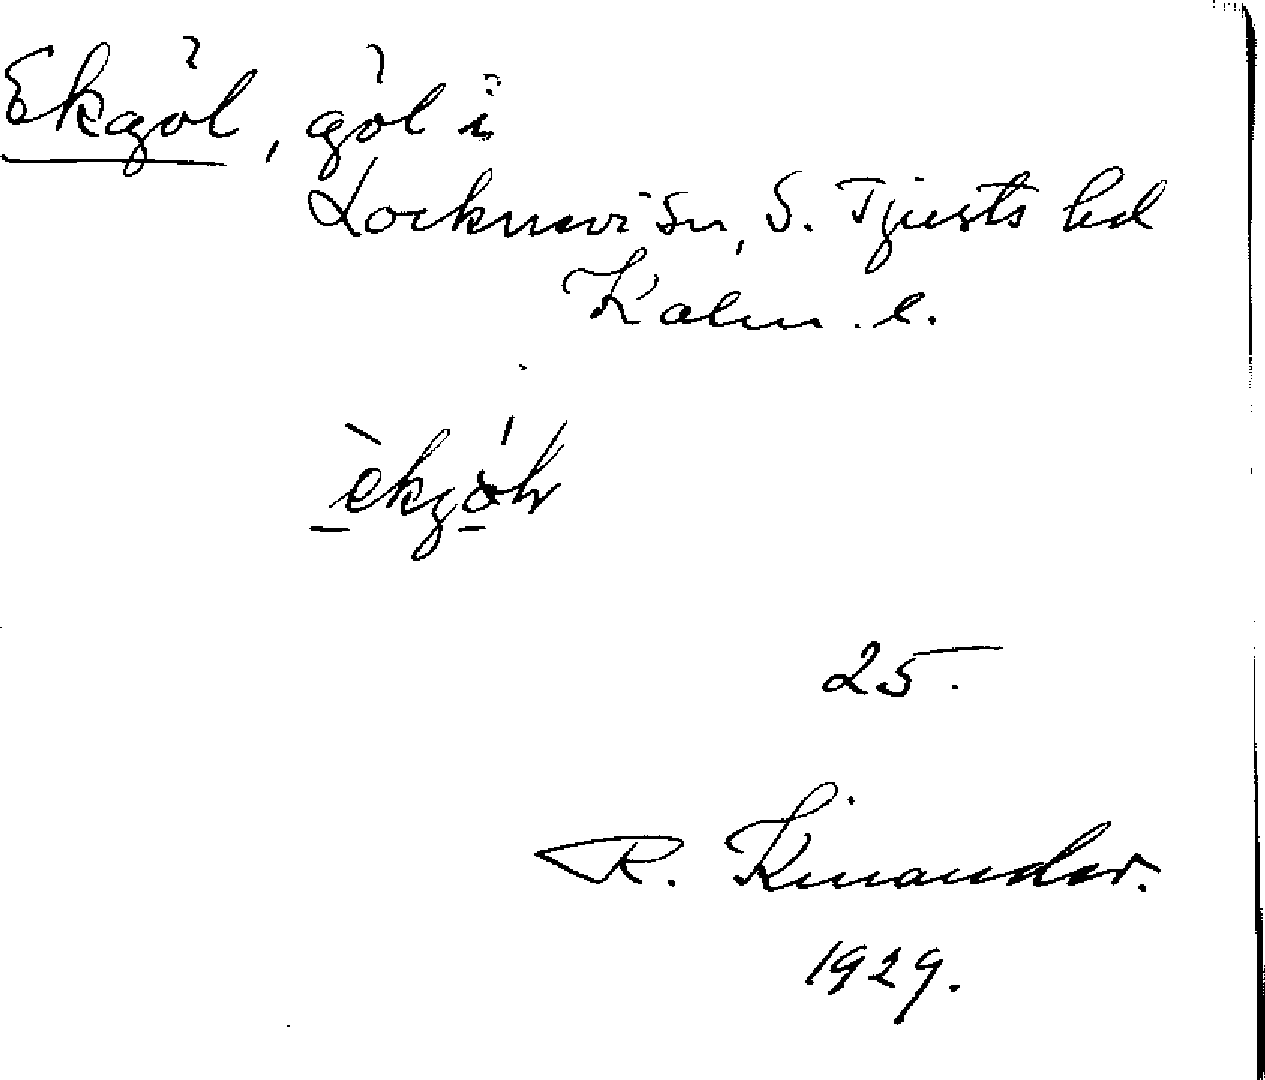 Ekgöl, göl i
Locknevi sn, S. Tjusts hd
Kalm. l.
25.
R. Kinander.
1929.